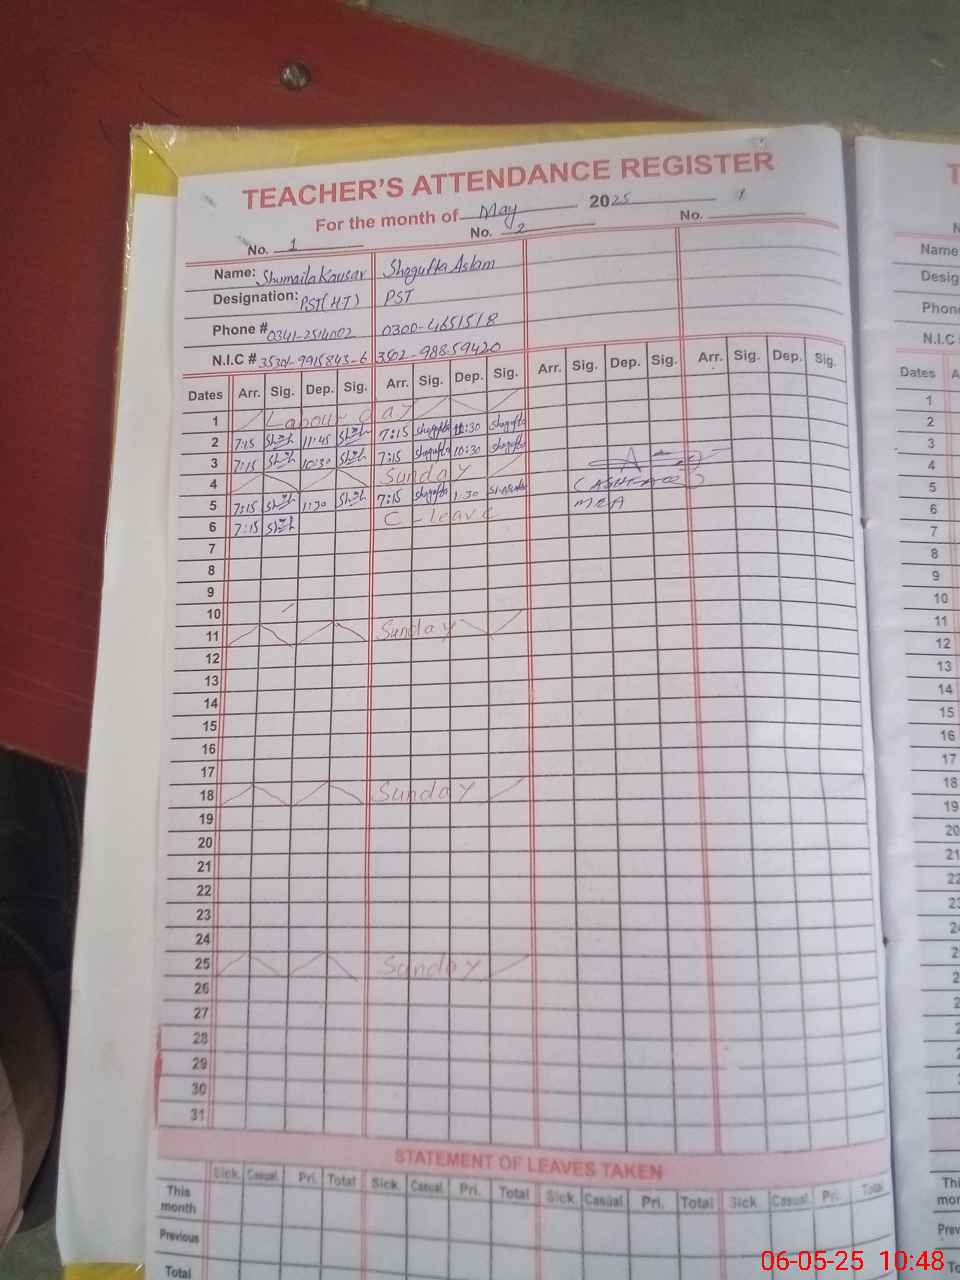 TEACHER'S ATTENDANCE REGISTER
For the month of May 2025
No. 1 No. 2 No.
Name: Shumaila Kausar Shagufta Aslam
Designation: PST(HT) PST
Phone # 0341-2514002 0300-4651518
N.I.C # 35301-9915843-6 3502-98859420
Dates Arr. Sig. Dep. Sig. Arr. Sig. Dep. Sig. Arr. Sig. Dep. Sig. Arr. Sig. Dep. Sig.
1 Labour day
2 7:15 11:45 7:15 shagufta 11:30 shagufta
3 7:15 10:30 7:15 shagufta 10:30 shagufta
4 Sunday
5 7:15 1:30 7:15 shagufta 1:30 shagufta
MEA
6 7:15 C-leave
7
8
9
10
11 Sunday
12
13
14
15
16
17
18 Sunday
19
20
21
22
23
24
25 Sunday
26
27
28
29
30
31
STATEMENT OF LEAVES TAKEN
Sick. Casual. Pri. Total Sick. Casual. Pri. Total Sick. Casual. Pri. Total Sick. Casual. Pri. Total
This month
Previous
Total
T
Name
Desig
Phon
N.I.C
Dates
1
2
3
4
5
6
7
8
9
10
11
12
13
14
15
16
17
18
19
20
21
22
06-05-25 10:48